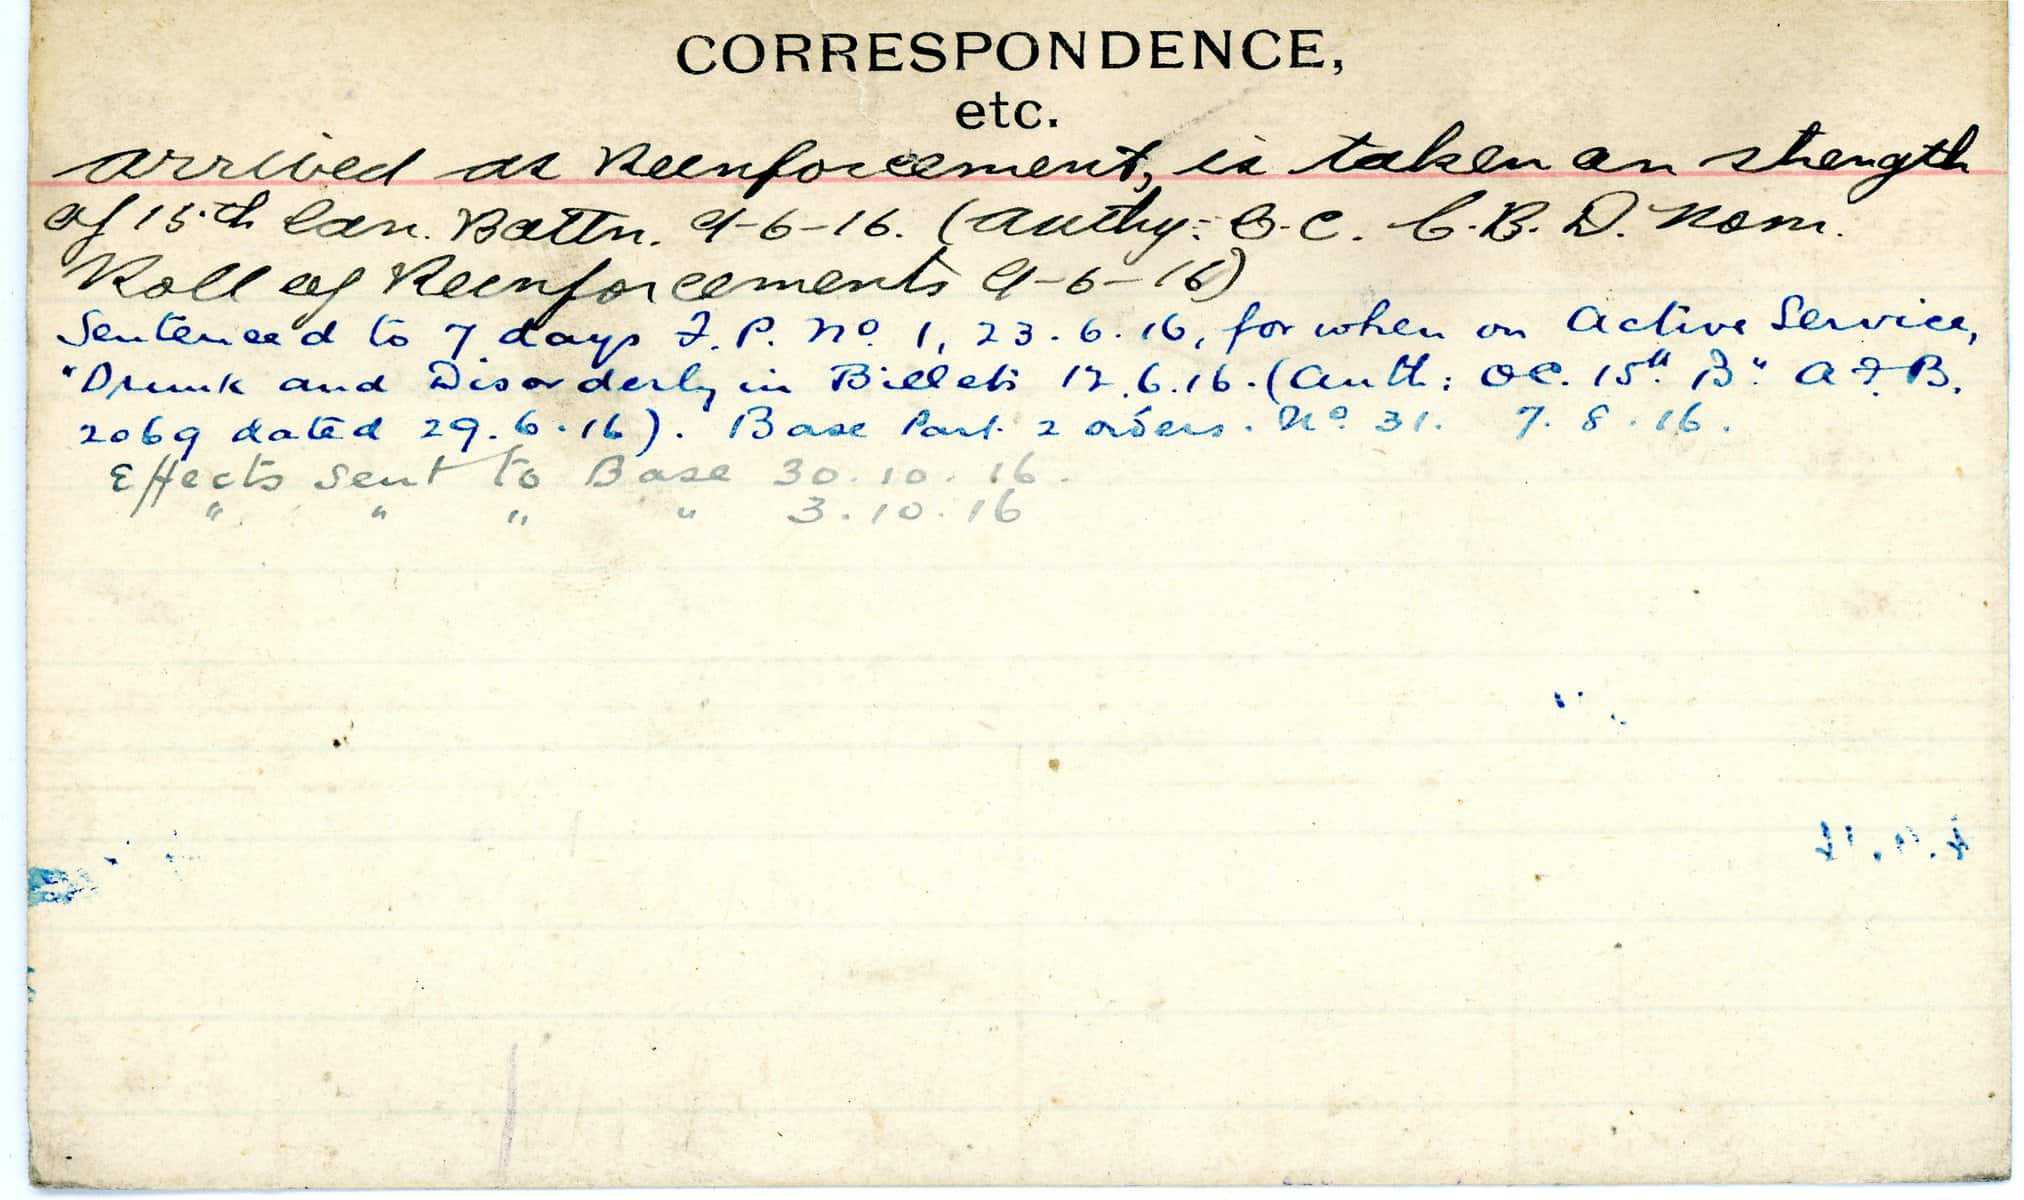 CORRESPONDENCE,
etc.
arrived as Reenforcement, is taken on strength
of 15th Can. Battn. 9-6-16. (Authy: O.C. C.B.D. Nom.
Roll of Reenforcements 9-6-16)
Sentenced to 7 days F.P. No 1, 23.6.16, for when on Active Service,
"Drunk and Disorderly in Billets 17.6.16. (Auth: OC. 15th Bn A.F.B.
2069 dated 29.6.16). Base Part 2 orders. No 31. 7.8.16.
Effects sent to Base 30.10.16.
" " " " 3.10.16